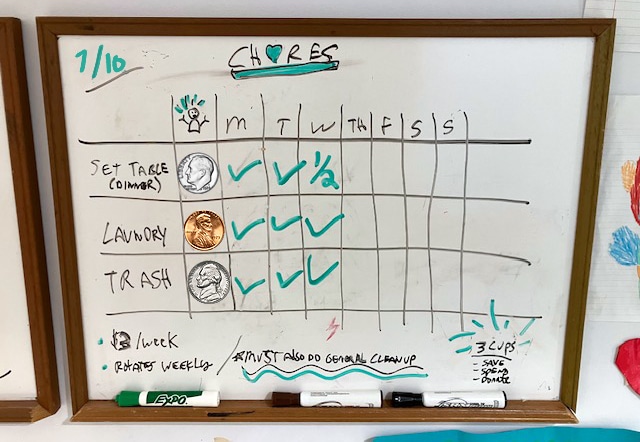 7/10
CH♥RES
M T W TH F S S
SET TABLE
(DINNER)
✓ ✓ 1/2
LAUNDRY
✓ ✓ ✓
TRASH
✓ ✓ ✓
/week
• ROTATES WEEKLY
*MUST ALSO DO GENERAL CLEANUP
3 CUPS
- SAVE
- SPEND
- DONATE
EXPO